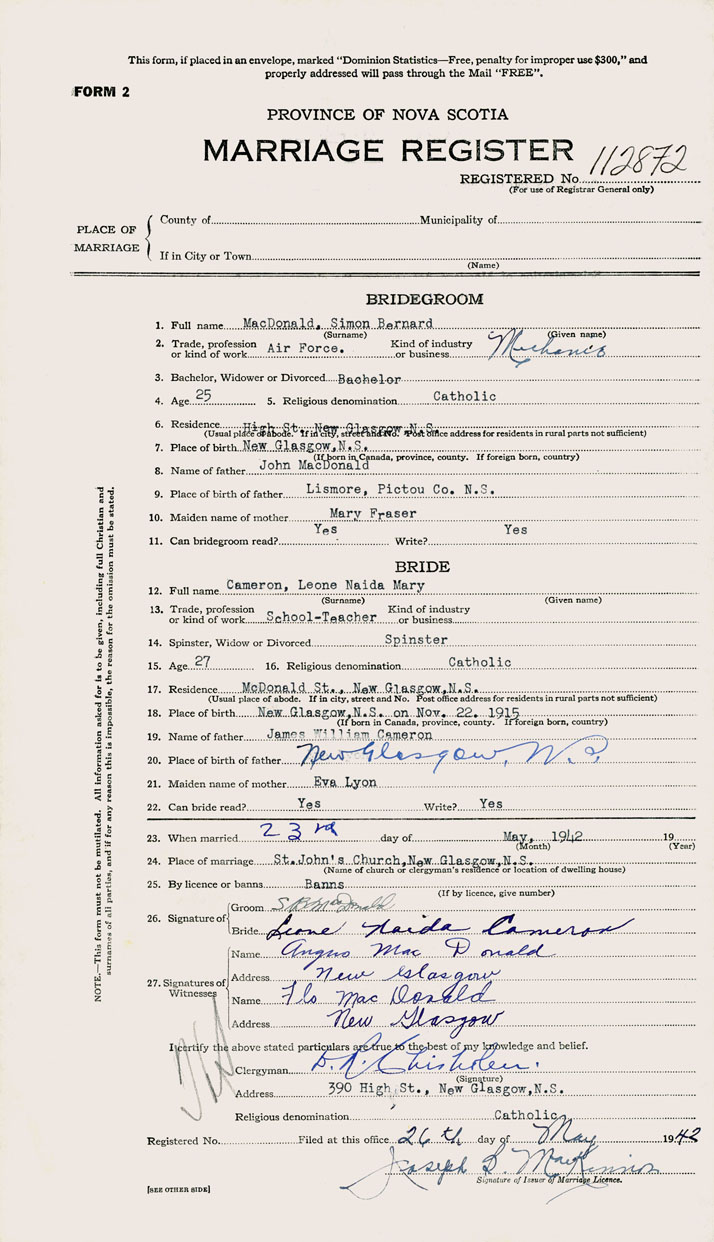 This form, if placed in an envelope, marked "Dominion Statistics—Free, penalty for improper use $300," and
properly addressed will pass through the Mail "FREE".
FORM 2
PROVINCE OF NOVA SCOTIA
MARRIAGE REGISTER
REGISTERED No. 112872
(For use of Registrar General only)
PLACE OF MARRIAGE
County of Municipality of
If in City or Town
(Name)
BRIDEGROOM
1. Full name MacDonald, Simon Bernard
(Surname) (Given name)
2. Trade, profession or kind of work Air Force. Kind of industry or business Mechanic
3. Bachelor, Widower or Divorced Bachelor
4. Age 25 5. Religious denomination Catholic
6. Residence High St., New Glasgow, N.S.
(Usual place of abode. If in city, street and No. Post office address for residents in rural parts not sufficient)
7. Place of birth New Glasgow, N.S.
(If born in Canada, province, county. If foreign born, country)
8. Name of father John MacDonald
9. Place of birth of father Lismore, Pictou Co. N.S.
10. Maiden name of mother Mary Fraser
11. Can bridegroom read? Yes Write? Yes
BRIDE
12. Full name Cameron, Leone Naida Mary
(Surname) (Given name)
13. Trade, profession or kind of work School-Teacher Kind of industry or business
14. Spinster, Widow or Divorced Spinster
15. Age 27 16. Religious denomination Catholic
17. Residence McDonald St., New Glasgow, N.S.
(Usual place of abode. If in city, street and No. Post office address for residents in rural parts not sufficient)
18. Place of birth New Glasgow, N.S. on Nov. 22. 1915
(If born in Canada, province, county. If foreign born, country)
19. Name of father James William Cameron
20. Place of birth of father New Glasgow, N.S.
21. Maiden name of mother Eva Lyon
22. Can bride read? Yes Write? Yes
23. When married 23rd day of May, 1942 19
(Month) (Year)
24. Place of marriage St. John's Church, New Glasgow, N.S.
(Name of church or clergyman's residence or location of dwelling house)
25. By licence or banns Banns
(If by licence, give number)
26. Signature of
Groom S B MacDonald
Bride Leone Naida Cameron
27. Signatures of Witnesses
Name Angus MacDonald
Address New Glasgow
Name Flo MacDonald
Address New Glasgow
I certify the above stated particulars are true to the best of my knowledge and belief.
Clergyman D. R. Chisholm.
(Signature)
Address 390 High St., New Glasgow, N.S.
Religious denomination Catholic
Registered No. Filed at this office 26th day of May 1942
Joseph MacKinnon
Signature of Issuer of Marriage Licence.
[SEE OTHER SIDE]
NOTE.—This form must not be mutilated. All information asked for is to be given, including full Christian and
surnames of all parties, and if for any reason this is impossible, the reason for the omission must be stated.